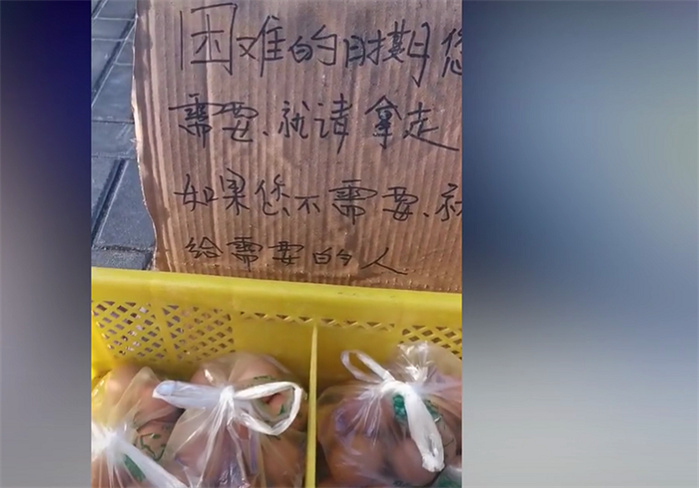 困难的时期您
需要、就请拿走
如果您不需要、就
给需要的人